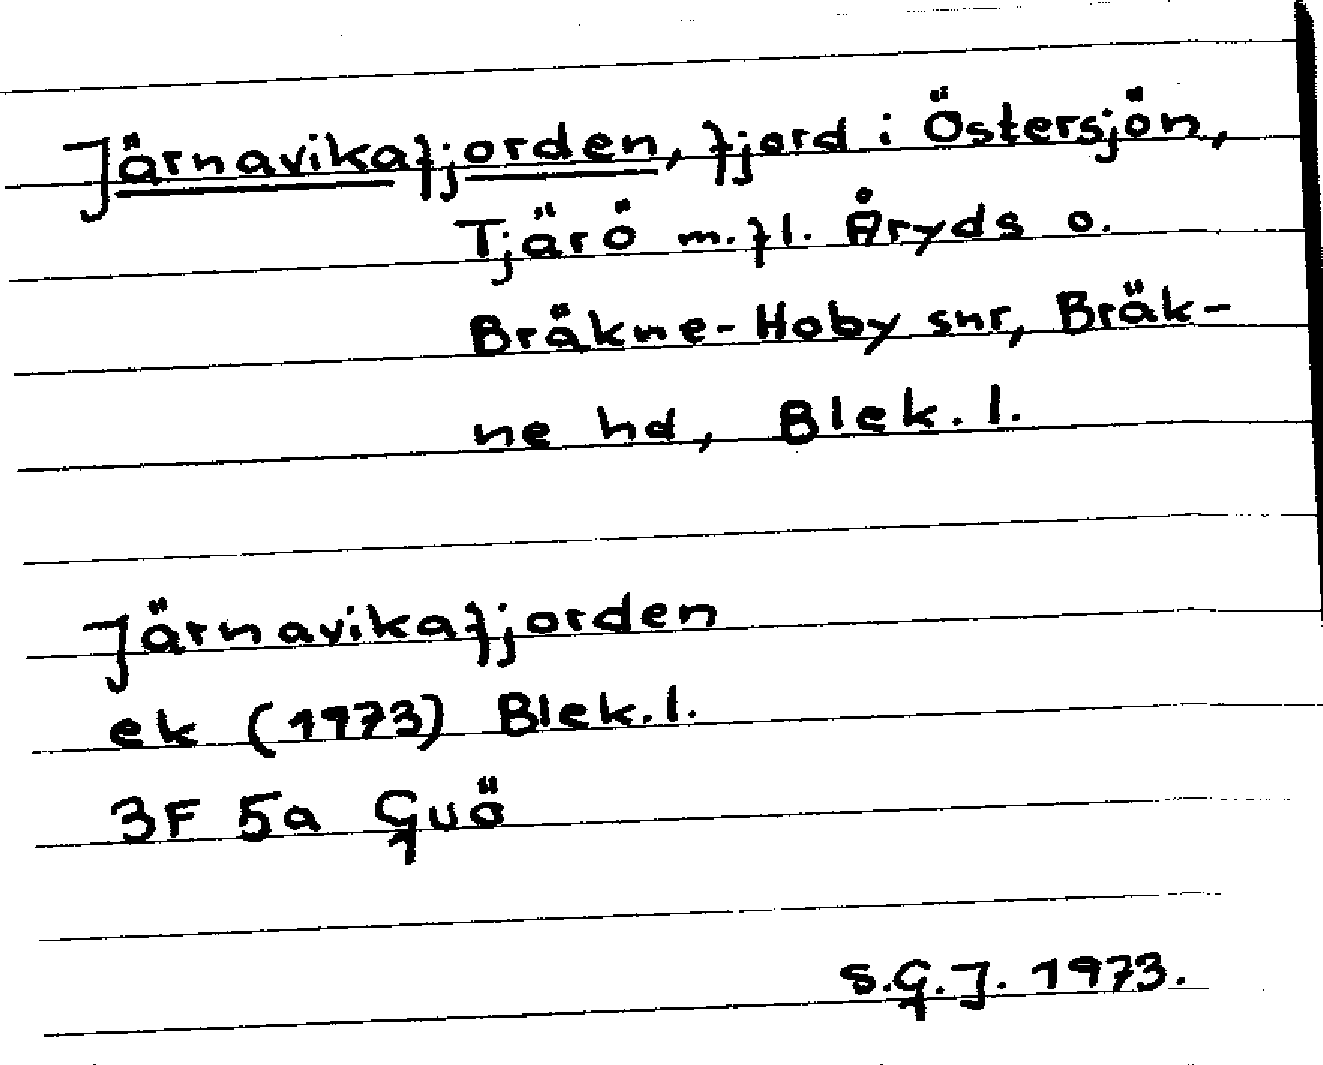 Järnavikafjorden, fjord i Östersjön,
Tjärö m.fl. Åryds o.
Bräkne-Hoby snr, Bräk-
ne hd, Blek. l.
Järnavikafjorden
ek (1973) Blek.l.
3F 5a Guö
S.G.J. 1973.